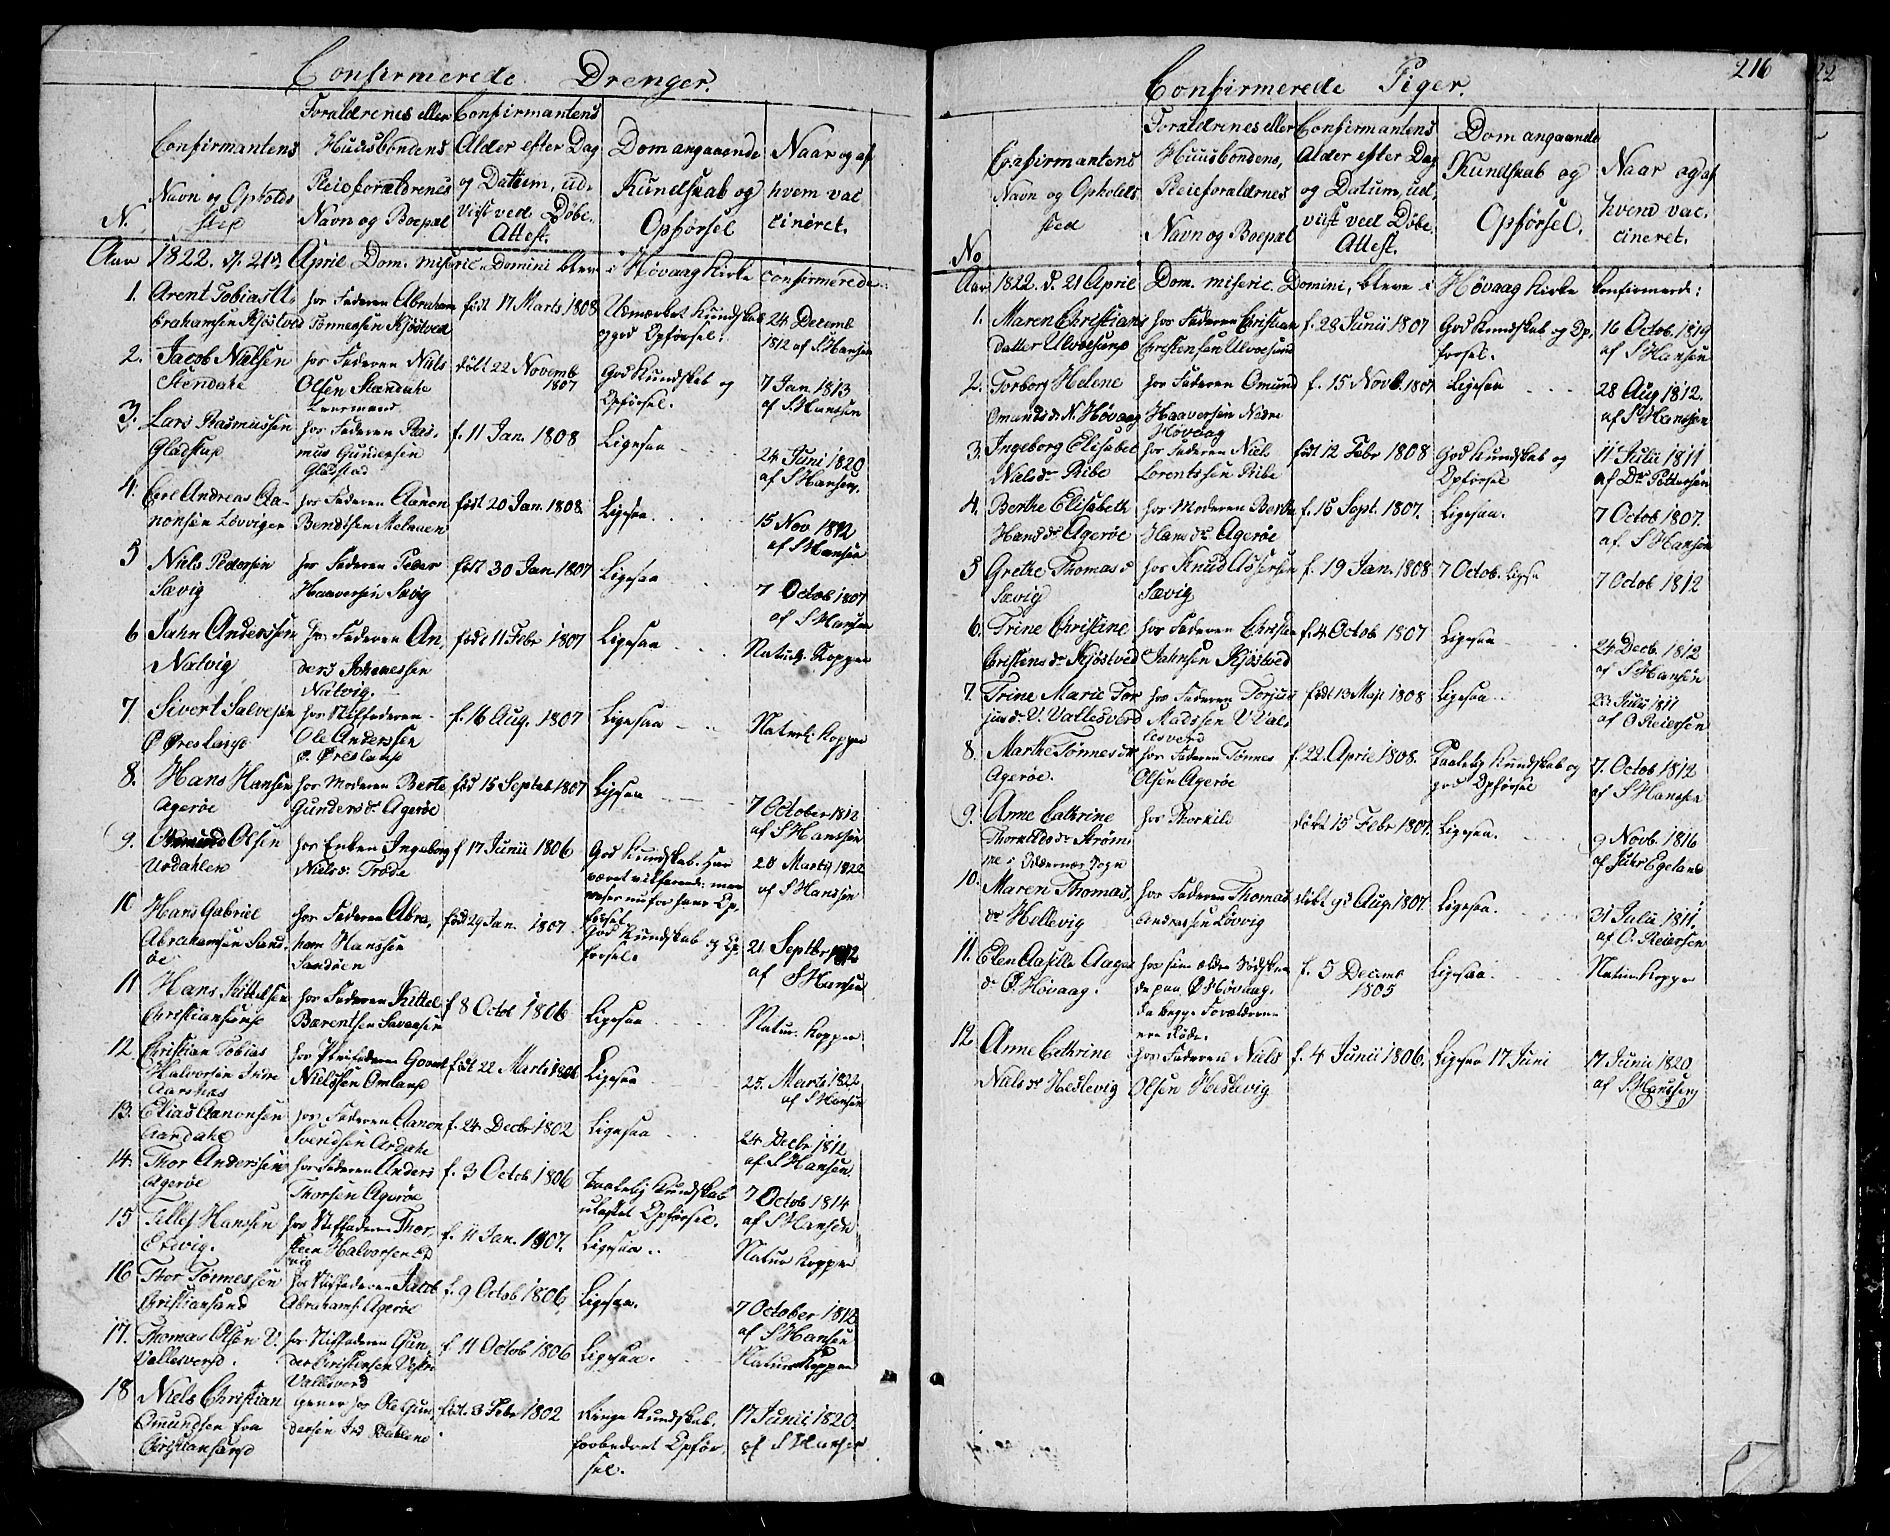 Confirmerede Drenger.
N.
Confirmantens
Navn og Opholds
sted
Forældrenes eller
Huusbondens
Pleieforældrenes
Navn og Boepæl
Confirmantens
Alder efter Dag
og Datum, ud-
viist ved Döbe-
Attest.
Dom angaaende
Kundskab og
Opførsel
Naar og af
hvem vac
cineret.
Aar 1822. d. 21de April Dom. miseric. Domini bleve i Høvaag Kirke confirmerede:
1. Arent Tobias A-
brahamsen Kjöstved
hos Faderen Abraham
Tönnessen Kjöstved
født 17 Marts 1808
Udmærket Kundskab
og god Opførsel.
24 Decemb
1812 af S Hansen
2. Jacob Nielsen
Stendale
hos Faderen Niels
Olsen Stændale
Lensmand
døbt 22 Novemb
1807
God Kundskab og
Opførsel.
7 Jan 1813
af S Hanssen
3. Lars Rasmussen
Gladstad
hos Faderen Ras-
mus Gundersen
Gladstad
f. 11 Jan. 1808
Ligesaa
24 Juni 1820
af S Hansen.
4. Carl Andreas Aa-
nonsen Lövvigen
hos Faderen Aanon
Bendtsen
født 20 Jan. 1808
Ligesaa.
15 Nov 1812
af S Hansen
5 Niels Pedersen
Sævig
hos Faderen Peder
Haaversen Sævig
født 30 Jan 1807
Ligesaa
7 Octob 1807
af S Hansen
6 Jahn Anderssen
Natvig
hos Faderen An-
ders Johannessen
Natvig.
født 11 Febr 1807
Ligesaa
Naturl. Kopper
7. Sivert Salvesen
Ø Øresland
hos Stiffaderen
Ole Anderssen
Ø. Øresland
f. 16 Aug. 1807
Ligesaa
Naturl: Kopper
8. Hans Hansen
Agerøe
hos Moderen Berte
Gundersdr Agerøe
fød 15 Septeb 1807
Ligesaa
7 October 1812
af S Hanssen
9. Olsen
Urdahlen
hos Enken Ingeborg
Nielsdr Trøde
f 17 Junii 1806
God Kundskab. Har
været vilfarende; men
roses nu for sand Op-
førsel.
20 Marts 1822
af S Hanssen
10 Hans Gabriel
Abrahamsen Sand-
öe
hos Faderen Abra-
ham Hanssen
Sandöen
fød 29 Jan. 1807
God Kundskab og Op-
førsel.
21 Septbr 1812
af S Hansen
11 Hans Kittelsen
Christiansand
hos Faderen Kittel
Bærentsen
f 8 Octob 1806
Ligesaa
Natur. Kopper
12 Christian Tobias
Halvorsen Indre
Aarsnæs
hos Pleifaderen
Nielssen Omland
født 22 Marts 1806
Ligesaa
25. Marts 1822
af S Hansen
13. Elias Aanonsen
Aardale
hos Faderen Aanon
Svendsen Ardale
f. 24 Decbr 1802
Ligesaa
24 Decbr 1812
af S Hansen
14. Thor Anderssen
Agerøe
hos Faderen Anders
Thorsen Agerøe
f. 3 Octob 1806
Taalelig Kundskab
ulastet Opførsel.
7 Octob 1814
af S Hansen
15 Tellef Hansen
hos Stiffaderen Thor-
steen Halvorsen
f. 11 Jan. 1807.
Ligesaa
Natur Kopper
16 Thor Tønnessen
Christiansand
hos Stiffaderen Jacob
Abrahams. Agerøe
f. 9 Octob 1806
Ligesaa.
7 October 1812
af S Hansen
17. Thomas Olsen V.
Vallesverd.
hos Stiffaderen Gun-
der Christensen Vestre
Vallesverd
f. 11 Octob 1806
Ligesaa.
Natur Kopper
18 Niels Christian
Omundsen fra
Christiansand
hos Ole Gun-
dersen
født. 3 Febr 1802
Ringe Kundskab.
forbedret Opfør-
sel.
17 Junii 1820
af S Hansen
216
Confirmerede Piger.
No
Confirmantens
Navn og Opholds
sted
Forældrenes eller
Huusbondens,
Pleieforældrenes
Navn og Boepæl
Confirmantens
Alder efter Dag
og Datum, ud-
viist ved Döbe-
Attest.
Dom angaaende
Kundskab og
Opførsel.
Naar og af
hvem vac-
cineret.
Aar 1822. d. 21 April Dom. miseric. Domini, bleve i Høvaag Kirke konfirmerede:
1. Maren Christians
datter Ulvøesund
hos Faderen Christian
Christensen Ulvoesund
f. 29 Junii 1807
God Kundskab og Op-
førsel.
16 Octob. 1819
af S Hansen
2. Torborg Helene
Omundsdr N. Høvaag
hos Faderen Omund
Haaversen Nedre
Høvaag
f. 15 Novb. 1807
Ligesaa
28 Aug 1812.
af S Hanssen
3. Ingeborg Elisabet
Nielsdr Ribe
hos Faderen Niels
Lorentssen Ribe
født 12 Febr 1808
God Kundskab og
Opførsel
11 Julii 1811
af Dr Pettersen
4. Berthe Elisabeth
Hansdr Agerøe
hos Moderen Berthe
Hansdr Agerøe
f. 15 Sept. 1807.
Ligesaa.
7 Octob 1807.
af. S Hansen
5 Grethe Thomasd
Sævig
hos Knud Assersen
Sævig
f. 19 Jan. 1808
7 Octob. Ligesa
7 Octob 1812
6. Trine Christine
Christensdr Kjöstved
hos Faderen Christen
Jahnsen Kjöstved
f. 4 Octob 1807
Ligesaa
24 Decb. 1812
af S Hansen
7. Trine Marie Tor
jusdr V. Vallesverd
hos Faderen Torjus
Madssen V Val-
lesverd
født 13 Maji 1808
Ligesaa
23 Julii 1811
af O. Reiersen
8. Marthe Tønnesdr
Agerøe.
hos Faderen Tønnes
Olsen Agerøe
f. 22. April 1808.
Taalelig Kundskab og
god Opførsel
7. Octob 1812
af S Hanssen
9. Anne Cathrine
Thorkildsdr Strøm-
me i Oddernes Sogn
hos Thorkild
døbt 15 Febr 1807.
Ligesaa.
9 Novb. 1816
af Egeland
10. Maren Thomas-
dr Hellevig
hos Faderen Thomas
Andreassen Lövvig
døbt 9d Aug 1807.
Ligesaa.
31 Julii 1811.
af O. Reiersen
11. Elen Aasille Aages
dr Ø. Høvaag.
hos sine ældre Sødsken-
de paa Ø Høvaag,
da begge Forældrene
ere døde.
f. 5 Decmb
1805
Ligesaa
Natur. Kopper
12 Anne Cathrine
Nielsdr Hæslevig
hos Faderen Niels
Olsen Heslevig
f. 4 Junii 1806.
Ligesaa 17 Juni
17 Junii 1820
af S Hanssen